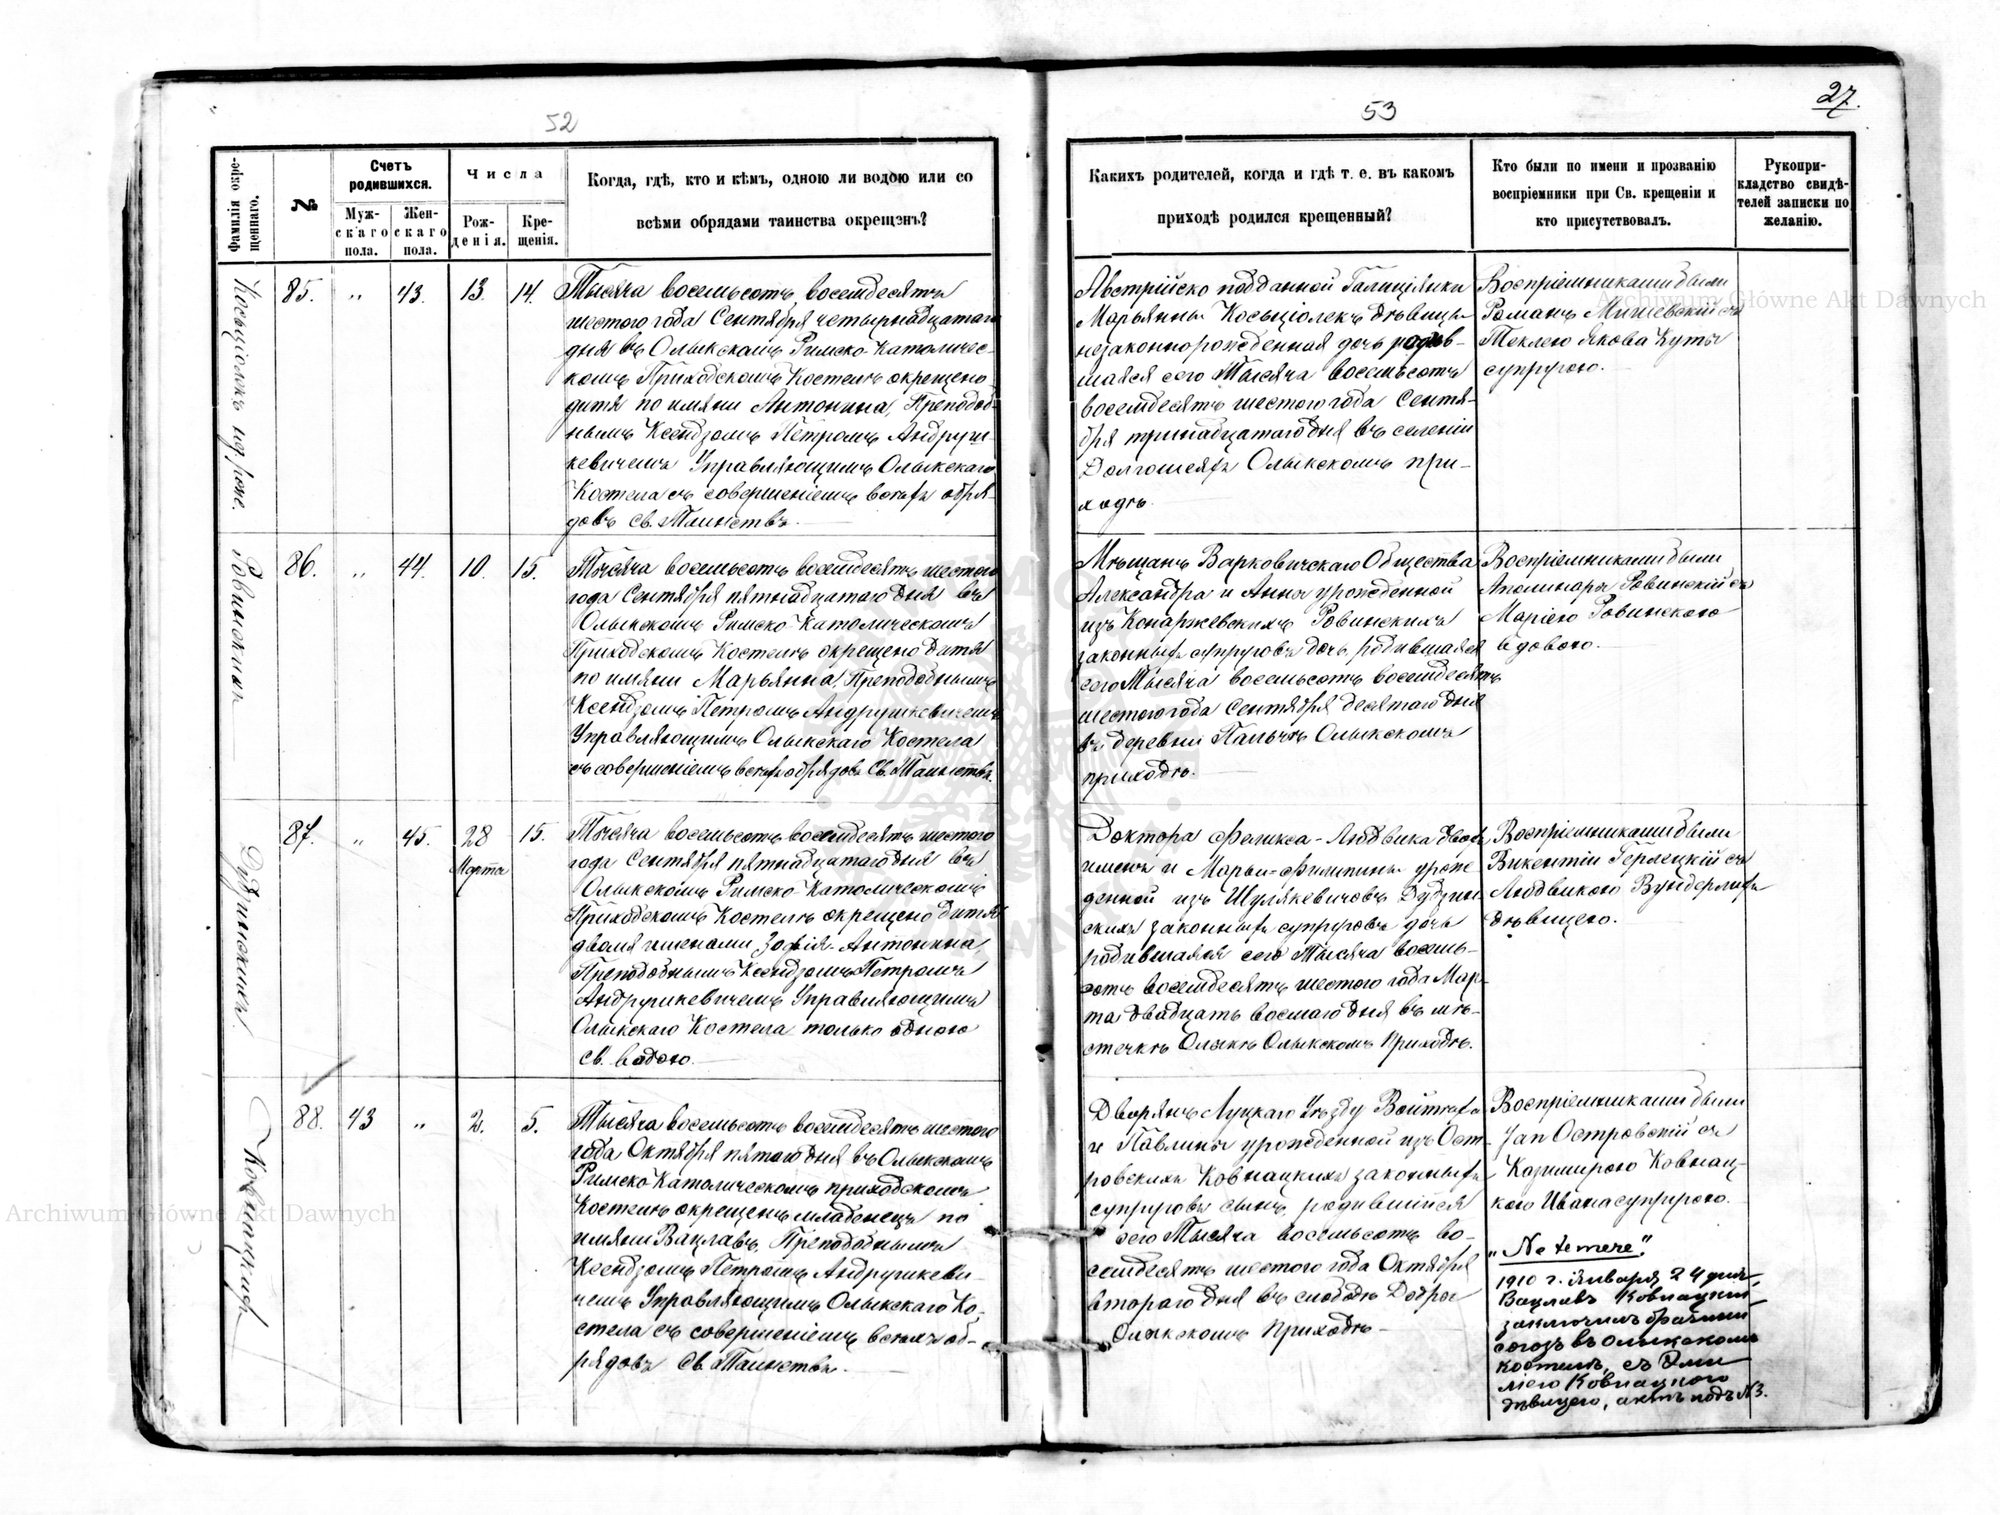 52
Фамилія окре-
щеннаго.
№
Счетъ
родившихся.
Муж-
скаго
пола.
Жен-
скаго
пола.
Числа
Рож-
денія.
Кре-
щенія.
Когда, гдѣ, кто и кѣмъ, одною ли водою или со
всѣми обрядами таинства окрещенъ?
85.
"
43.
13.
14.
Тысяча восемьсотъ восемдесятъ
шестого года Сентября четырнадцатаго
дня въ Олыкскомъ Римско-Католичес-
комъ Приходскомъ Костелѣ окрещено
дитя по имяни Антонина, Преподоб-
нымъ Ксендзомъ Петромъ Андруш-
кевичемъ Управляющимъ Олыкскаго
Костела съ совершеніемъ всѣхъ обря-
довъ Св. Таинства.
Ровинская
86.
"
44.
10.
15.
Тысяча восемьсотъ восемдесятъ шестого
года Сентября пятнадцатаго дня въ
Олыкскомъ Римско-Католическомъ
Приходскомъ Костелѣ окрещено дитя
по имяни Марьянна, Преподобнымъ
Ксендзомъ Петромъ Андрушкевичемъ
Управляющимъ Олыкскаго Костела
съ совершеніемъ всѣхъ обрядовъ Св. Таинства.
87.
"
45.
28
Марта
15.
Тысяча восемьсотъ восемдесятъ шестого
года Сентября пятнадцатаго дня въ
Олыкскомъ Римско-Католическомъ
Приходскомъ Костелѣ окрещено дитя
двомя именами Зофія-Антонина,
Преподобнымъ Ксендзомъ Петромъ
Андрушкевичемъ Управляющимъ
Олыкскаго Костела только одною
Св. водою.
88.
43
"
2.
5.
Тысяча восемьсотъ восемдесятъ шестого
года Октября пятого дня въ Олыкскомъ
Римско-Католическомъ приходскомъ
Костелѣ окрещенъ младенецъ по
имяни Вацлавъ, Преподобнымъ
Ксендзомъ Петромъ Андрушкеви-
чемъ Управляющимъ Олыкскаго Ко-
стела съ совершеніемъ всѣхъ об-
рядовъ Св. Таинства.
53
27.
Какихъ родителей, когда и гдѣ т. е. въ какомъ
приходѣ родился крещенный?
Кто были по имени и прозванію
воспріемники при Св. крещеніи и
кто присутствовалъ.
Рукопри-
кладство свидѣ-
телей записки по
желанію.
Австрійско подданной Галиціянки
Марьянны Косьціолекъ дѣвицы
незаконнорожденная дочь родив-
шаяся сего Тысяча восемьсотъ
восемдесятъ шестого года Сентя-
бря тринадцатаго дня въ селеніи
Олыкскомъ при-
ходѣ.
Воспріемниками были
Романъ Мишевскій съ
Теклею Якова Куты
супругою.
Мѣщанъ Варковичскаго Общества
Александра и Анны урожденной
изъ Конаржевскихъ Ровинскихъ
законныхъ супруговъ дочь, родившаяся
сего Тысяча восемьсотъ восемдесятъ
шестого года Сентября десятаго дня
въ деревни Пальчѣ Олыкскомъ
приходѣ.
Воспріемниками были
Аполинаръ Ровинскій съ
Маріею Ровинскою
вдовою.
Доктора Феликса-Людвика двохъ
именъ и Марьи-Филипины урож
денной изъ Шулякевичовъ
законныхъ супруговъ дочь
родившаяся сего Тысяча восемь-
сотъ восемдесятъ шестого года Мар-
та двадцать восмаго дня въ мѣ-
стечкѣ Олыкѣ Олыкскомъ Приходѣ.
Воспріемниками были
Викентій Герлецкій съ
Людвикою Вундерлихъ
дѣвицею.
Дворянъ Луцкаго Уѣзду Войтѣха
и Павлины урожденной изъ Ост-
ровскихъ Ковнацкихъ законныхъ
супруговъ сынъ, родившійся
сего Тысяча восемьсотъ во-
семдесятъ шестого года Октября
втораго дня въ слободѣ
Олыкскомъ Приходѣ
Воспріемниками были
Янъ Островскій съ
Казимирою Ковнац-
кою Ивана супругою.
"Ne temere".
1910 г. Января 24 дня,
Вацлавъ Ковнацкій
заключилъ брачный
союзъ въ Олыкскомъ
костелѣ, съ Эми
ліею Ковнацкою
дѣвицею, актъ подъ №3.
Archiwum Główne Akt Dawnych
Archiwum Główne Akt Dawnych